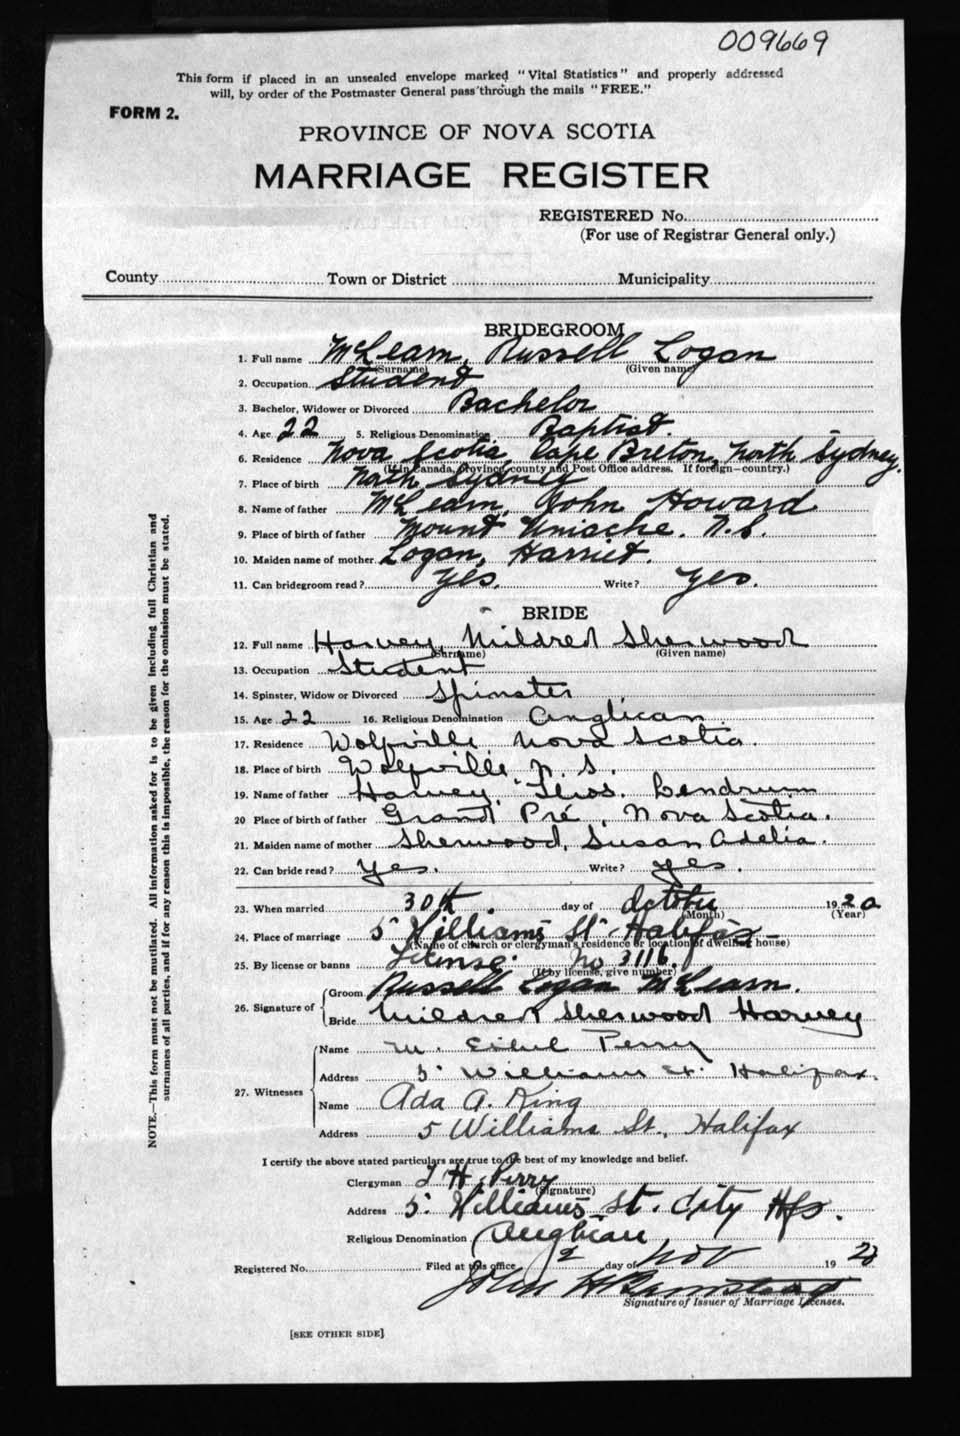 009669
This form if placed in an unsealed envelope marked "Vital Statistics" and properly addressed
will, by order of the Postmaster General pass through the mails "FREE."
FORM 2.
PROVINCE OF NOVA SCOTIA
MARRIAGE REGISTER
REGISTERED No.
(For use of Registrar General only.)
County Town or District Municipality
BRIDEGROOM
1. Full name McLearn, Russell Logan
(Surname) (Given name)
2. Occupation Student
3. Bachelor, Widower or Divorced Bachelor
4. Age 22 5. Religious Denomination Baptist.
6. Residence Nova Scotia, Cape Breton, North Sydney.
(If in Canada, Province, county and Post Office address. If foreign—country.)
7. Place of birth North Sydney
8. Name of father McLearn, John Howard
9. Place of birth of father Mount Uniacke. N.S.
10. Maiden name of mother Logan, Harriet.
11. Can bridegroom read? Yes. Write? Yes.
BRIDE
12. Full name Harvey, Mildred Sherwood
(Surname) (Given name)
13. Occupation Student
14. Spinster, Widow or Divorced Spinster
15. Age 22 16. Religious Denomination Anglican
17. Residence Wolfville Nova Scotia.
18. Place of birth Wolfville, N. S.
19. Name of father Harvey, Thos. Lendrum
20 Place of birth of father Grand Pré, Nova Scotia.
21. Maiden name of mother Sherwood, Susan Adelia.
22. Can bride read? Yes. Write? Yes.
23. When married 30th. day of October 1920
(Month) (Year)
24. Place of marriage 5 Williams St. Halifax
(Name of church or clergyman's residence or location of dwelling house)
25. By license or banns License. No 3116.
(If by license, give number)
26. Signature of
Groom Russell Logan McLearn.
Bride Mildred Sherwood Harvey
27. Witnesses
Name M. Ethel Perry
Address 5 Williams St. Halifax.
Name Ada A. King
Address 5 Williams St., Halifax
I certify the above stated particulars are true to the best of my knowledge and belief.
Clergyman H. Perry
(Signature)
Address 5 Williams St. City Hfx.
Religious Denomination Anglican
Registered No. Filed at this office 2 day of Nov 1920
John H
Signature of Issuer of Marriage Licenses.
[SEE OTHER SIDE]
NOTE.—This form must not be mutilated. All information asked for is to be given including full Christian and
surnames of all parties, and if for any reason this is impossible, the reason for the omission must be stated.